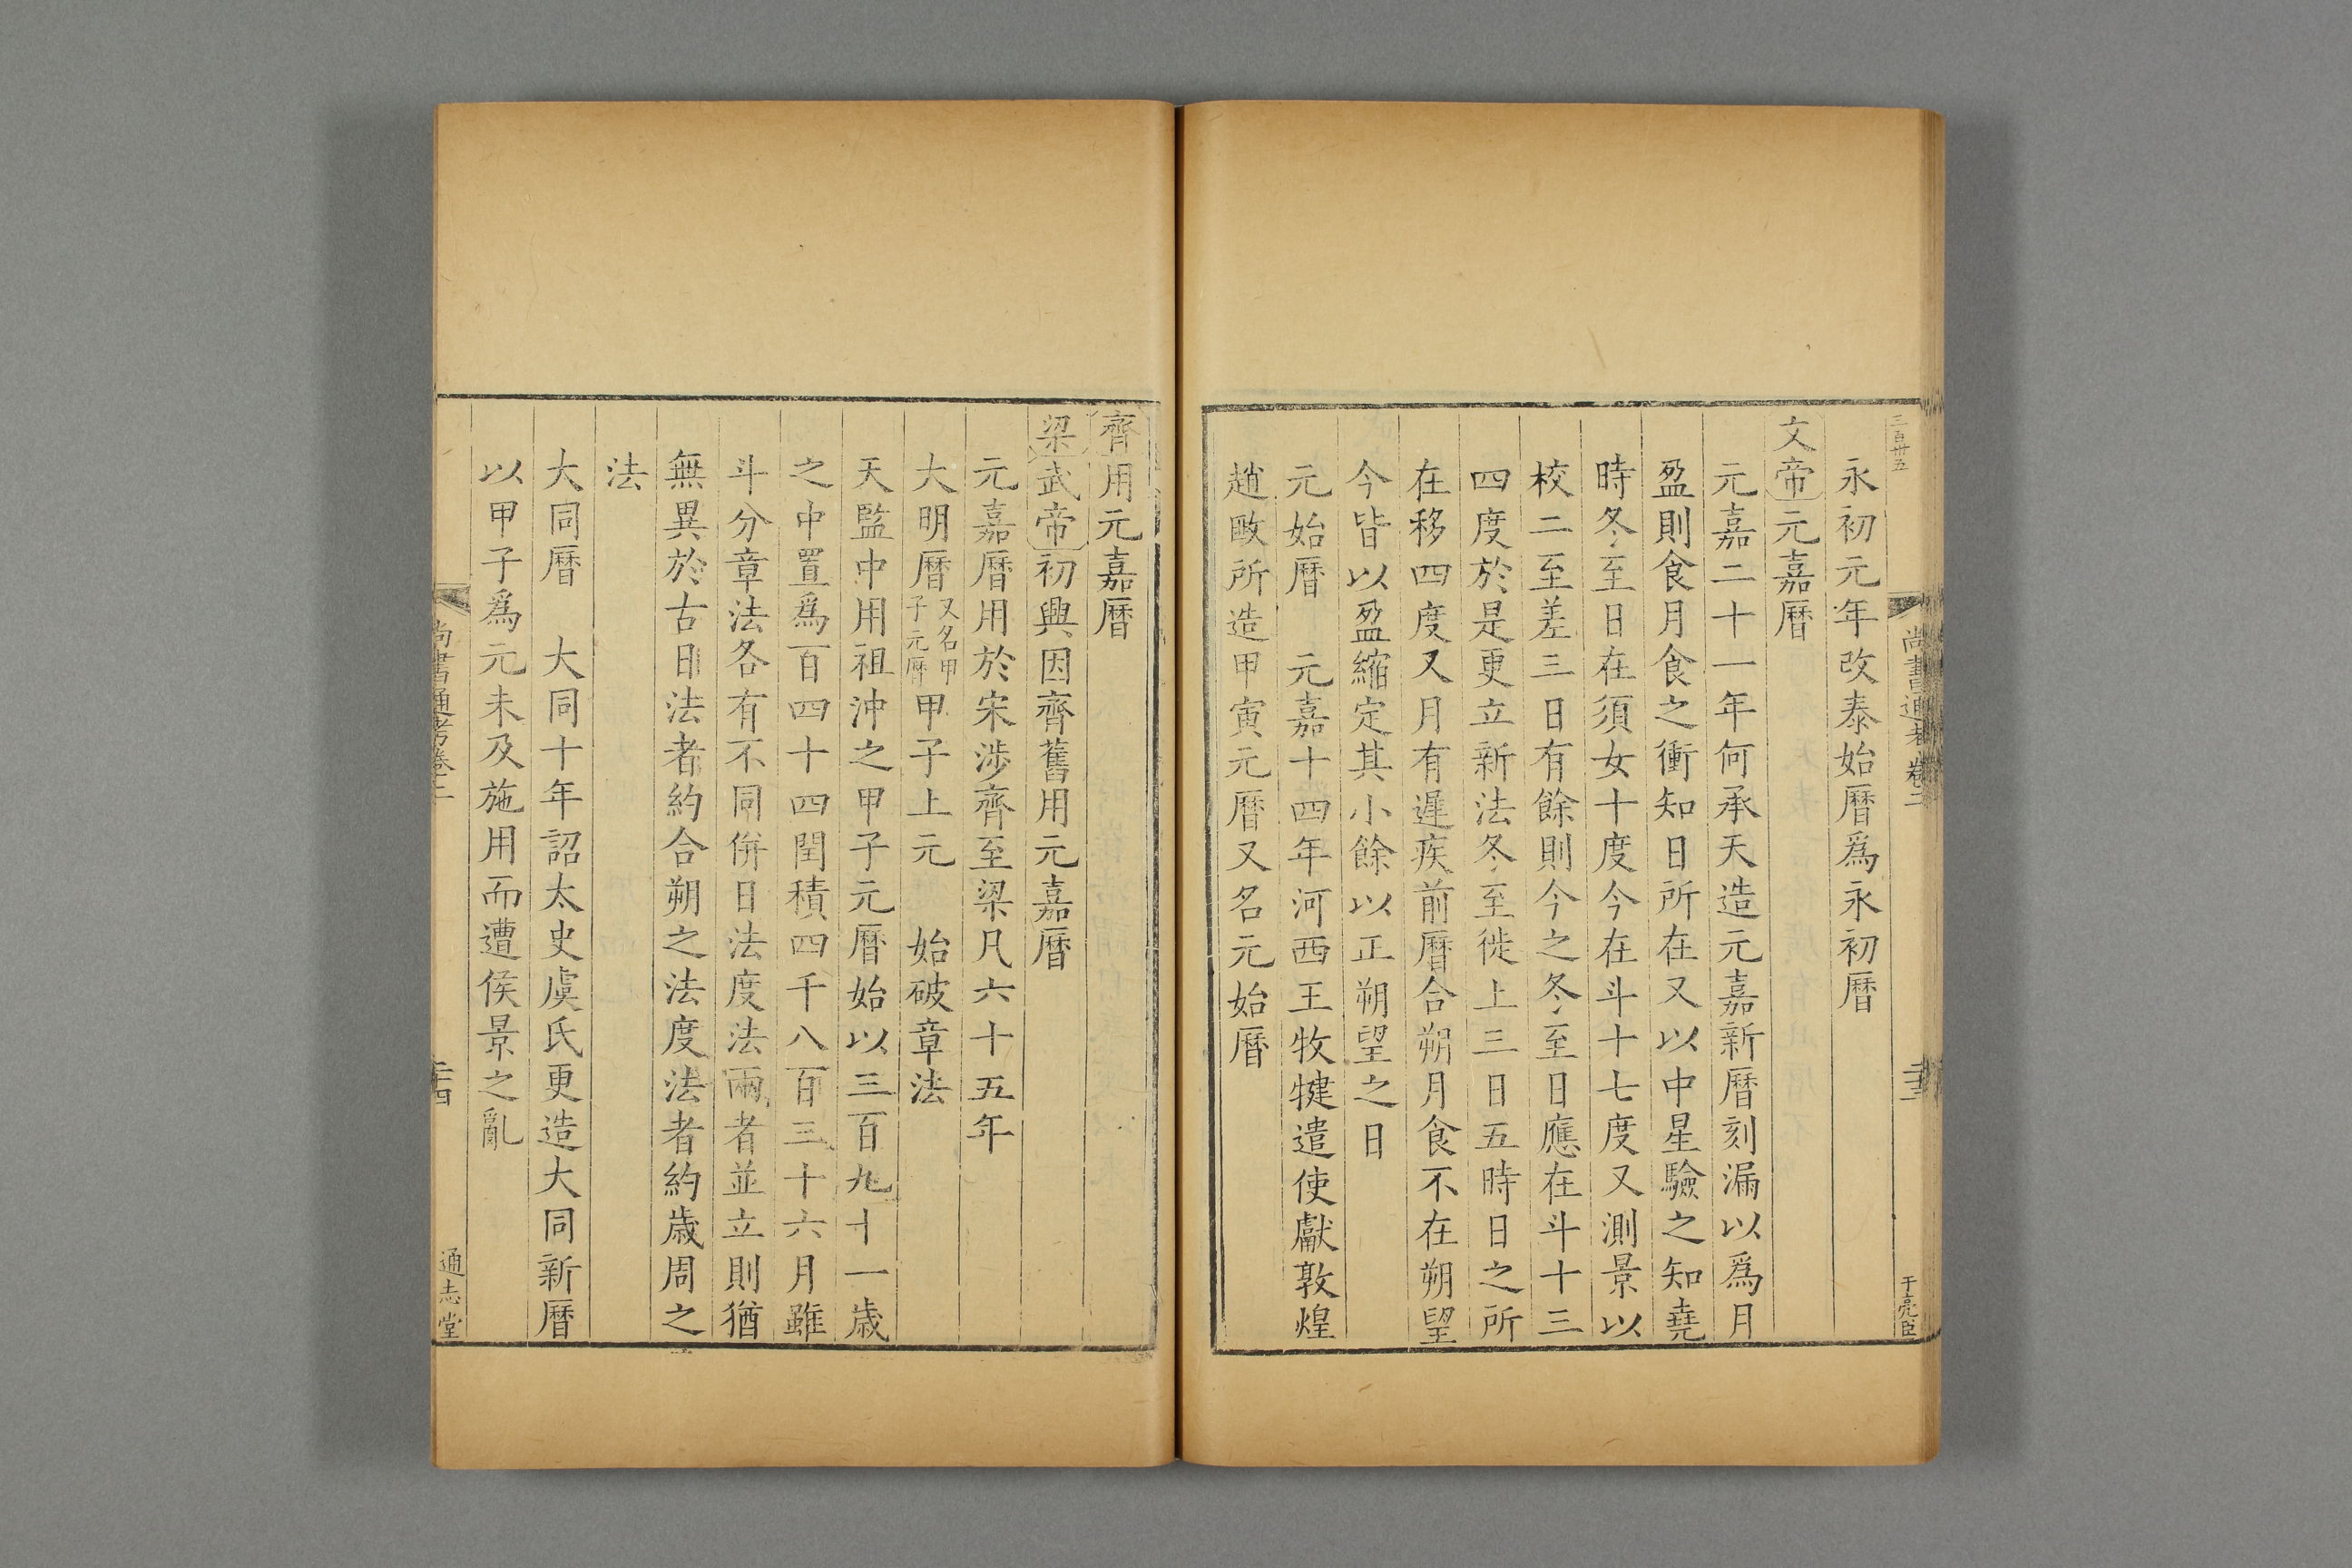 三百卅五
尚書通考卷二
于亮臣
永初元年改泰始曆爲永初曆
文帝元嘉曆
元嘉二十一年何承天造元嘉新曆刻漏以爲月
盈則食月食之衝知日所在又以中星驗之知堯
時冬至日在須女十度今在斗十七度又測景以
校二至差三日有餘則今之冬至日應在斗十三
四度於是更立新法冬至徙上三日五時日之所
在移四度又月有遲疾前曆合朔月食不在朔望
今皆以盈縮定其小餘以正朔望之日
元始曆 元嘉十四年河西王牧犍遣使獻敦煌
趙𢾺所造甲寅元曆又名元始曆
齊用元嘉曆
梁武帝初興因齊舊用元嘉曆
元嘉曆用於宋涉齊至梁凡六十五年
大明曆又名甲子元曆甲子上元 始破章法
天監中用祖沖之甲子元曆始以三百九十一歲
之中置爲百四十四閏積四千八百三十六月雖
斗分章法各有不同併日法度法兩者並立則猶
無異於古日法者約合朔之法度法者約歲周之
法
大同曆 大同十年詔太史虞氏更造大同新曆
以甲子爲元未及施用而遭侯景之亂
尚書通考卷二
二十四
通志堂